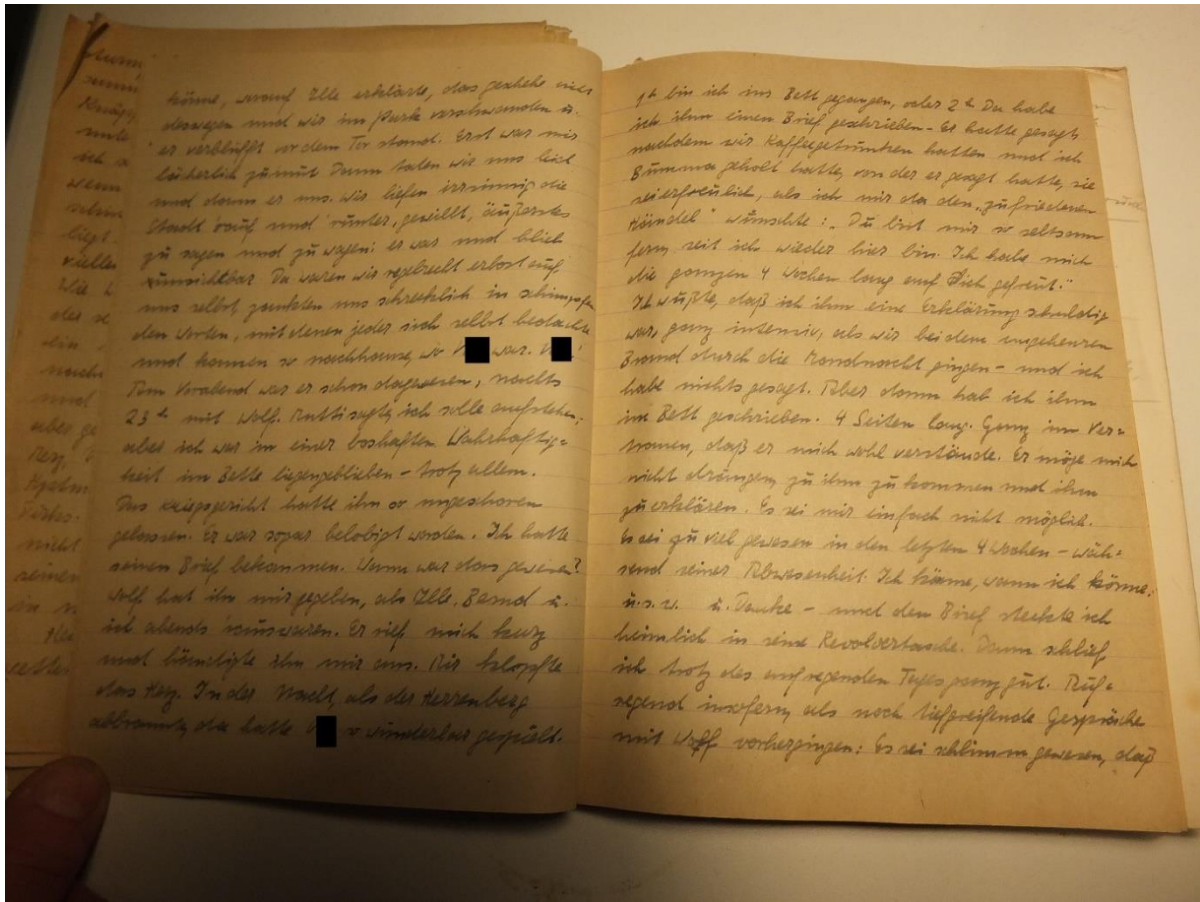 könne, worauf Ille erklärte, das geschehe eines
deswegen und wir im Park verschwanden u.
er verblüfft vor dem Tor stand. Erst war mir
lächerlich zumut. Dann taten wir uns leid
und dann er uns. Wir liefen irrsinnig die
Stadt rauf und runter, gewillt, äußerstes
zu sagen und zu wagen: er war und blieb
unsichtbar. Da waren wir regelrecht erbost auf
uns selbst, zankten uns schrecklich in schimpfen
den Worten, mit denen jeder sich selbst bedachte
und kamen so nachhause, wo war.
Am Vorabend war er schon dagewesen, nachts
23 h mit Wolf. Mutti sagte, ich solle aufstehen,
aber ich war in einer boshaften Wahrhaftig=
keit im Bette liegengeblieben – trotz allem.
Das Kriegsgericht hatte ihn so ungeschoren
gelassen. Er war sogar belobigt worden. Ich hatte
seinen Brief bekommen. Wann war das gewesen?
Wolf hat ihn mir gegeben, als Ille, Bernd u.
ich abends rauswaren. Er rief mich kurz
und händigte ihn mir aus. Mir klopfte
das Herz. In der Nacht, als der Herrenberg
abbrannte, da hatte so wunderbar gespielt.
1 h bin ich ins Bett gegangen, oder 2 h. Da habe
ich ihm einen Brief geschrieben – Er hatte gesagt,
nachdem wir Kaffeegetrunken hatten und ich
Bumma geholt hatte, von der er gesagt hatte, sie
sei erfreulich, als ich mir da den „zufriedenen
Händel" wünschte: „Du bist mir so seltsam
fern, seit ich wieder hier bin. Ich habe mich
die ganzen 4 Wochen lang auf Dich gefreut."
Ich wußte, daß ich ihm eine Erklärung schuldig
war, ganz intensiv, als wir bei dem ungeheuren
Brand durch die Mondnacht gingen – und ich
habe nichts gesagt. Aber dann hab ich ihm
im Bett geschrieben. 4 Seiten lang. Ganz im Ver=
trauen, daß er mich wohl verstände. Er möge mich
nicht drängen, zu ihm zu kommen und ihm
zu erklären. Es sei mir einfach nicht möglich.
Es sei zu viel gewesen in den letzten 4 Wochen – wäh=
rend seiner Abwesenheit. Ich käme, wann ich könne.
u.s.w. u. Danke – und den Brief steckte ich
heimlich in seine Revolvertasche. Dann schlief
ich trotz des aufregenden Tages ganz gut. Auf=
regend insofern, als noch tiefgreifende Gespräche
mit Wolf vorhergingen: Es sei schlimm gewesen, daß